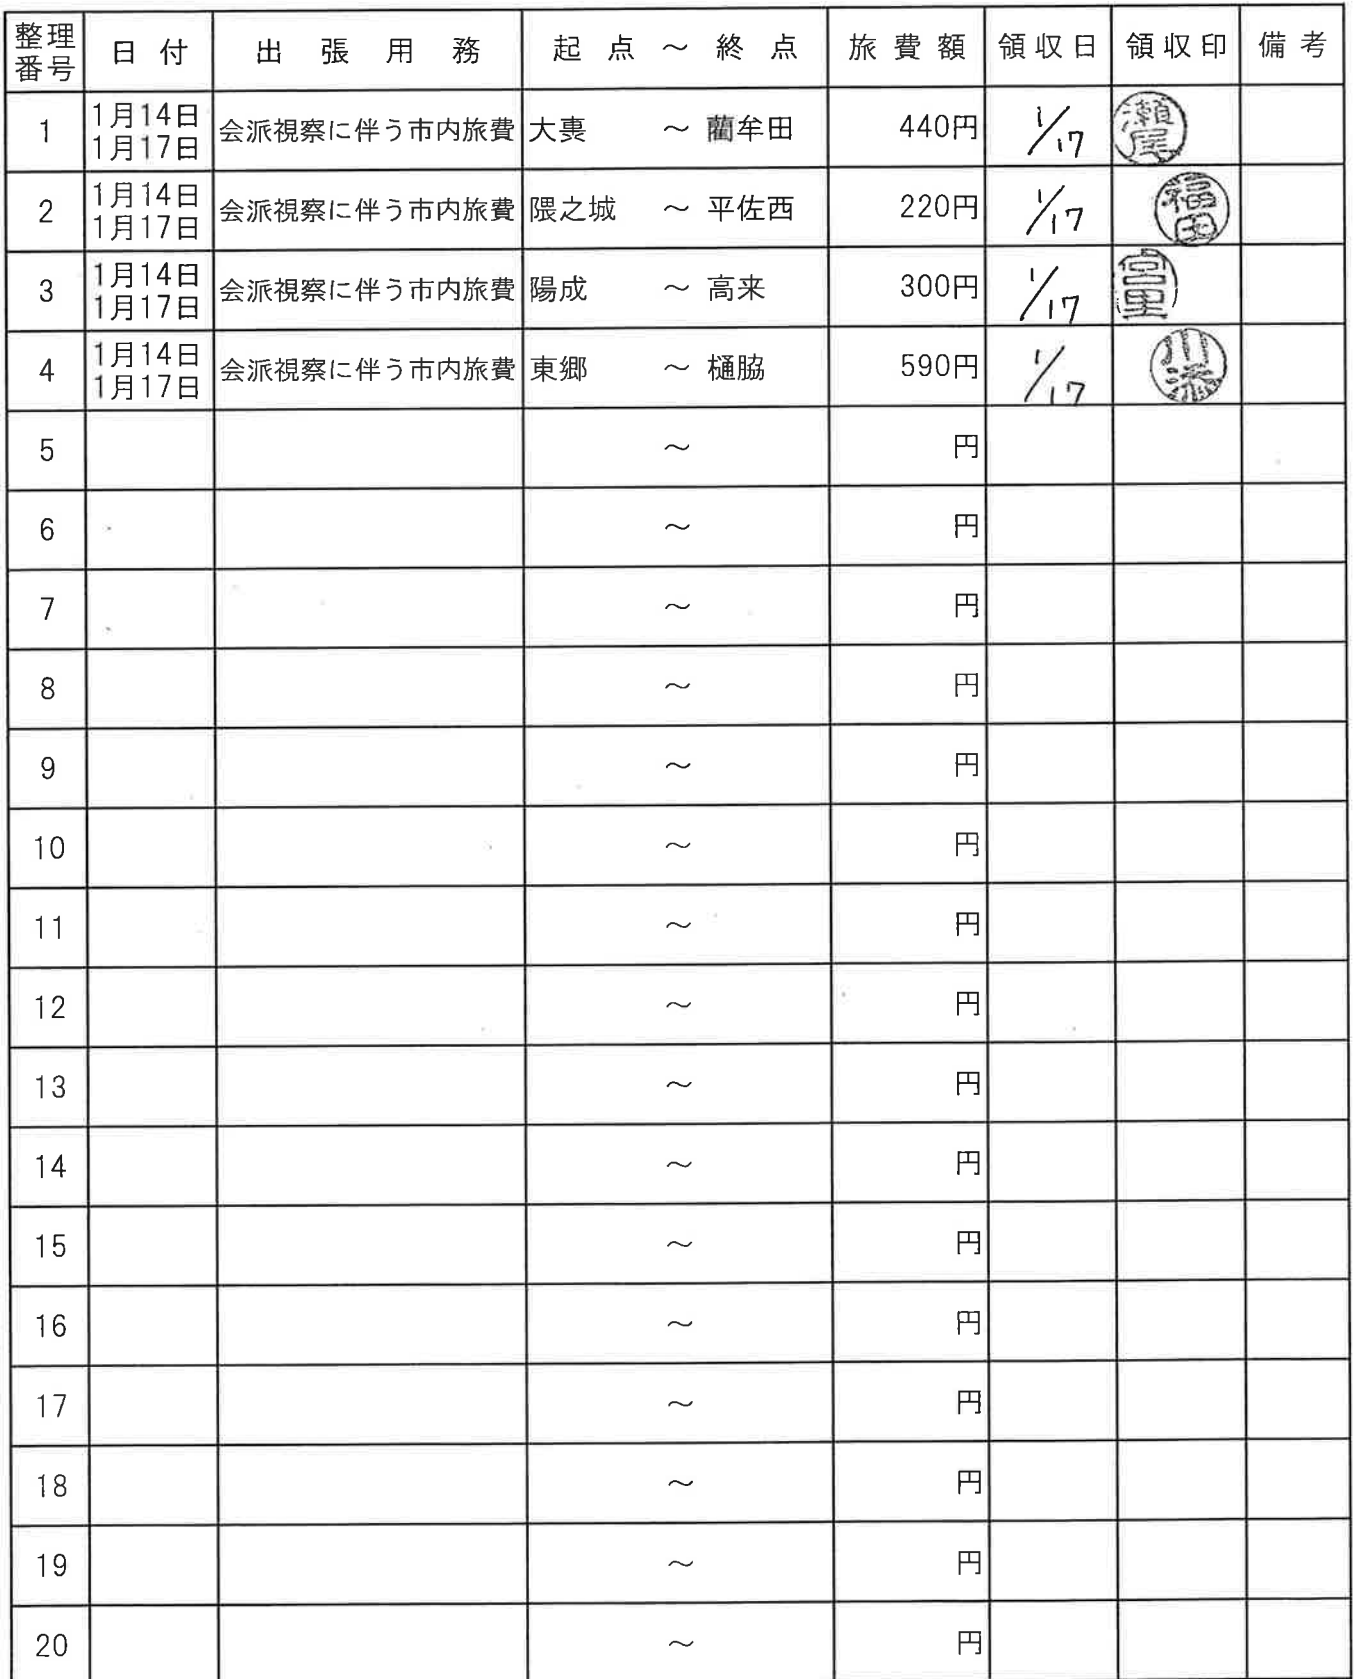 整理番号 日付 出張用務 起点～終点 旅費額 領収日 領収印 備考
1 1月14日 1月17日 会派視察に伴う市内旅費 大裏 ～ 藺牟田 440円 1/17 瀬尾
2 1月14日 1月17日 会派視察に伴う市内旅費 隈之城 ～ 平佐西 220円 1/17 福田
3 1月14日 1月17日 会派視察に伴う市内旅費 陽成 ～ 高来 300円 1/17 宮里
4 1月14日 1月17日 会派視察に伴う市内旅費 東郷 ～ 樋脇 590円 1/17 川添
5 ～ 円
6 ～ 円
7 ～ 円
8 ～ 円
9 ～ 円
10 ～ 円
11 ～ 円
12 ～ 円
13 ～ 円
14 ～ 円
15 ～ 円
16 ～ 円
17 ～ 円
18 ～ 円
19 ～ 円
20 ～ 円